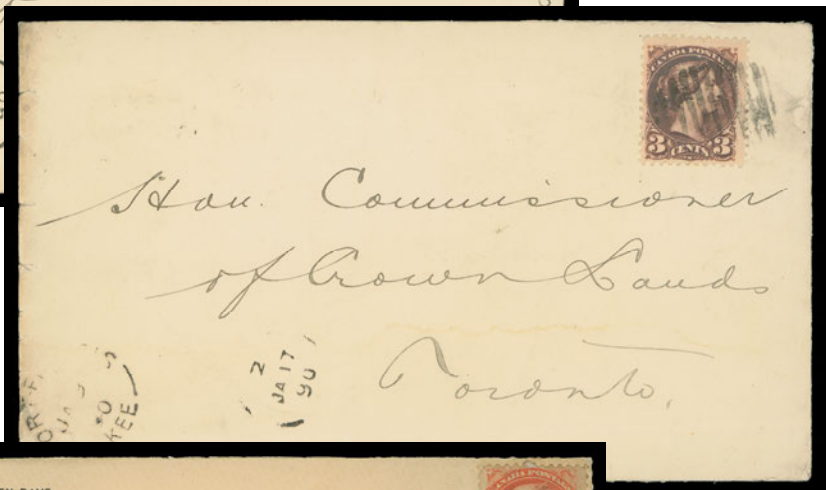 CANADA POSTAGE
3 CENTS 3
Hon. Commissioner
of Crown Lands
Toronto.
2
JA 17
90